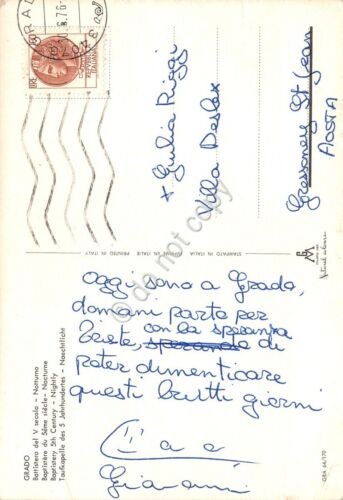 GRADO
Battistero del V secolo - Notturno
Baptistère du 5ème siècle - Nocturne
Baptistery 5th Century - Nightly
Taufkapelle des 5 Jahrhundertes - Naechtlicht
Oggi sono a Grado,
domani parto per
Trieste, con la speranza
speranda di
poter dimenticare
questi brutti giorni
Ciao
Giovanni
Giulia Riggi
Villa Deslex
Gressoney St Jean
AOSTA
STAMPATO IN ITALIA IMPRIMÉ EN ITALIE PRINTED IN ITALY
GRA 64/170
do not copy